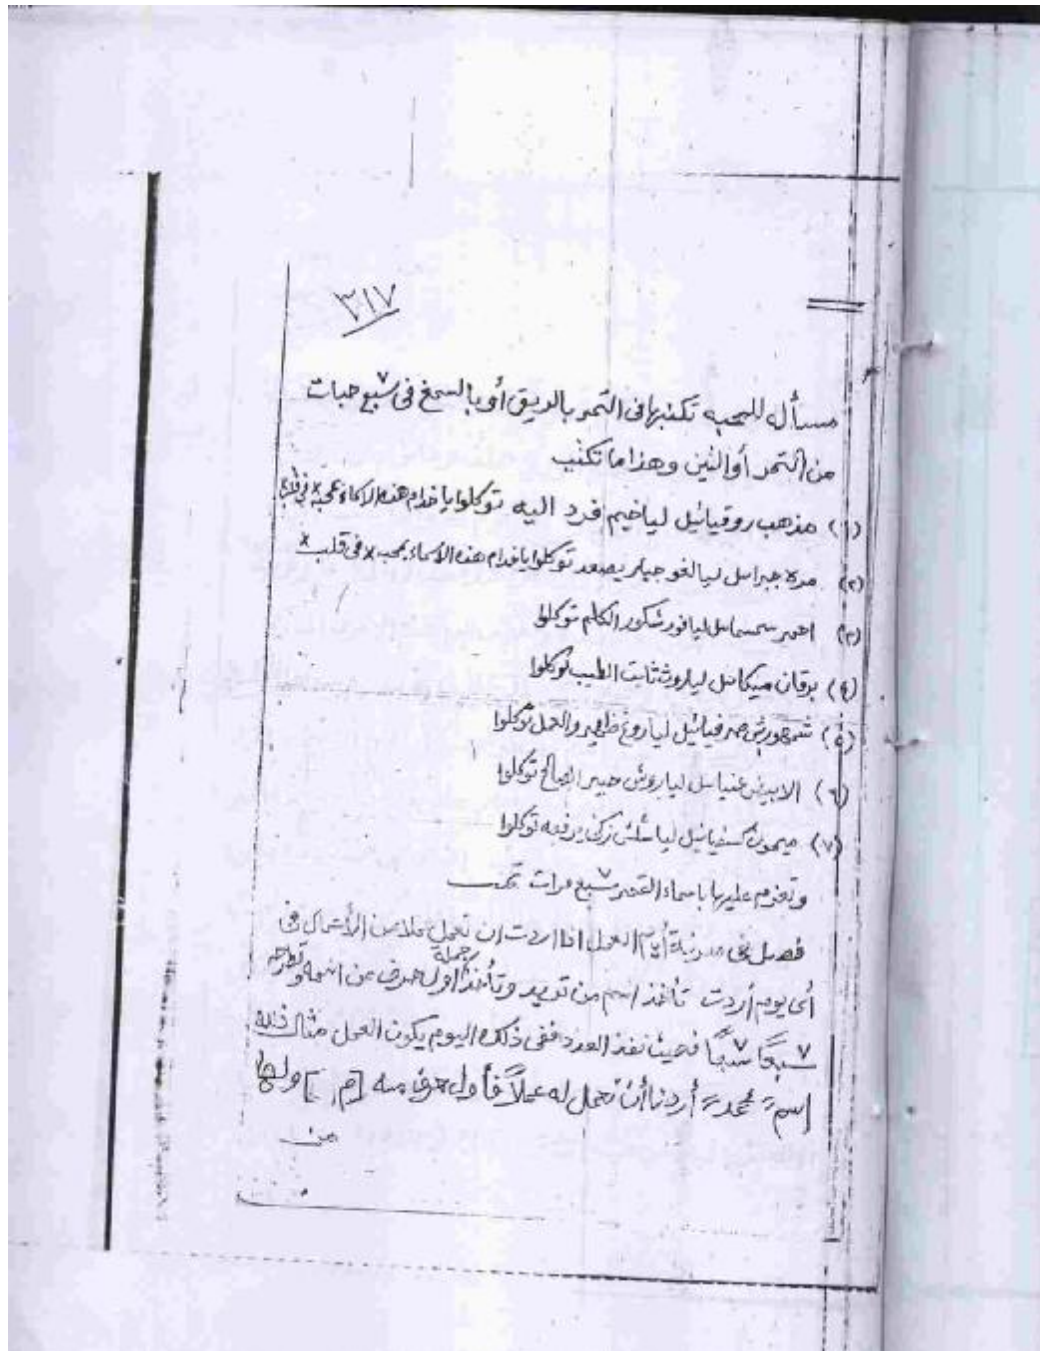 ٣١٧
مسأله للمحبه تكتبها فى التمر بالريق أو بالسمغ فى سبع ٧ حبات
من التمر أو التين وهذا ما تكتب
(١) مذهب روقيائيل لياخيم فرد اليه توكلوا يا خدام هذه الاسماء بمحبة x فى قلب
(٢) مره جبرائيل ليالغو جبار يصعد توكلوا يا خدام هذه الأسماء بمحبة x فى قلب x
(٣) احمر سمسمائيل ليافور شكور الكلم توكلوا
(٤) برقان ميكائيل لياروث ثابت الطيب توكلوا
(٥) شمهورش صرفيائيل لياروغ ظهير والعمل توكلوا
(٦) الابيض عنيائيل لياروش خبير الصالح توكلوا
(٧) ميمون كسفيائيل لياشلش زكى يرفعه توكلوا
وتعزم عليها باسماء القمر سبع ٧ مرات تمت
فصل فى معرفة أيام العمل اذا اردت ان تعمل عملا من الأعمال فى
أى يوم أردت تأخذ اسم من تريد وتأخذ جملة اول حرف من اسمه وتطرحه
سبعًا ٧ سبعًا ٧ فحيث نفذ العدد ففى ذلك اليوم يكون العمل مثال ذلك
اسم = محمد = أردنا أن نعمل له عملاً فأول حرف منه [م] ولها
من